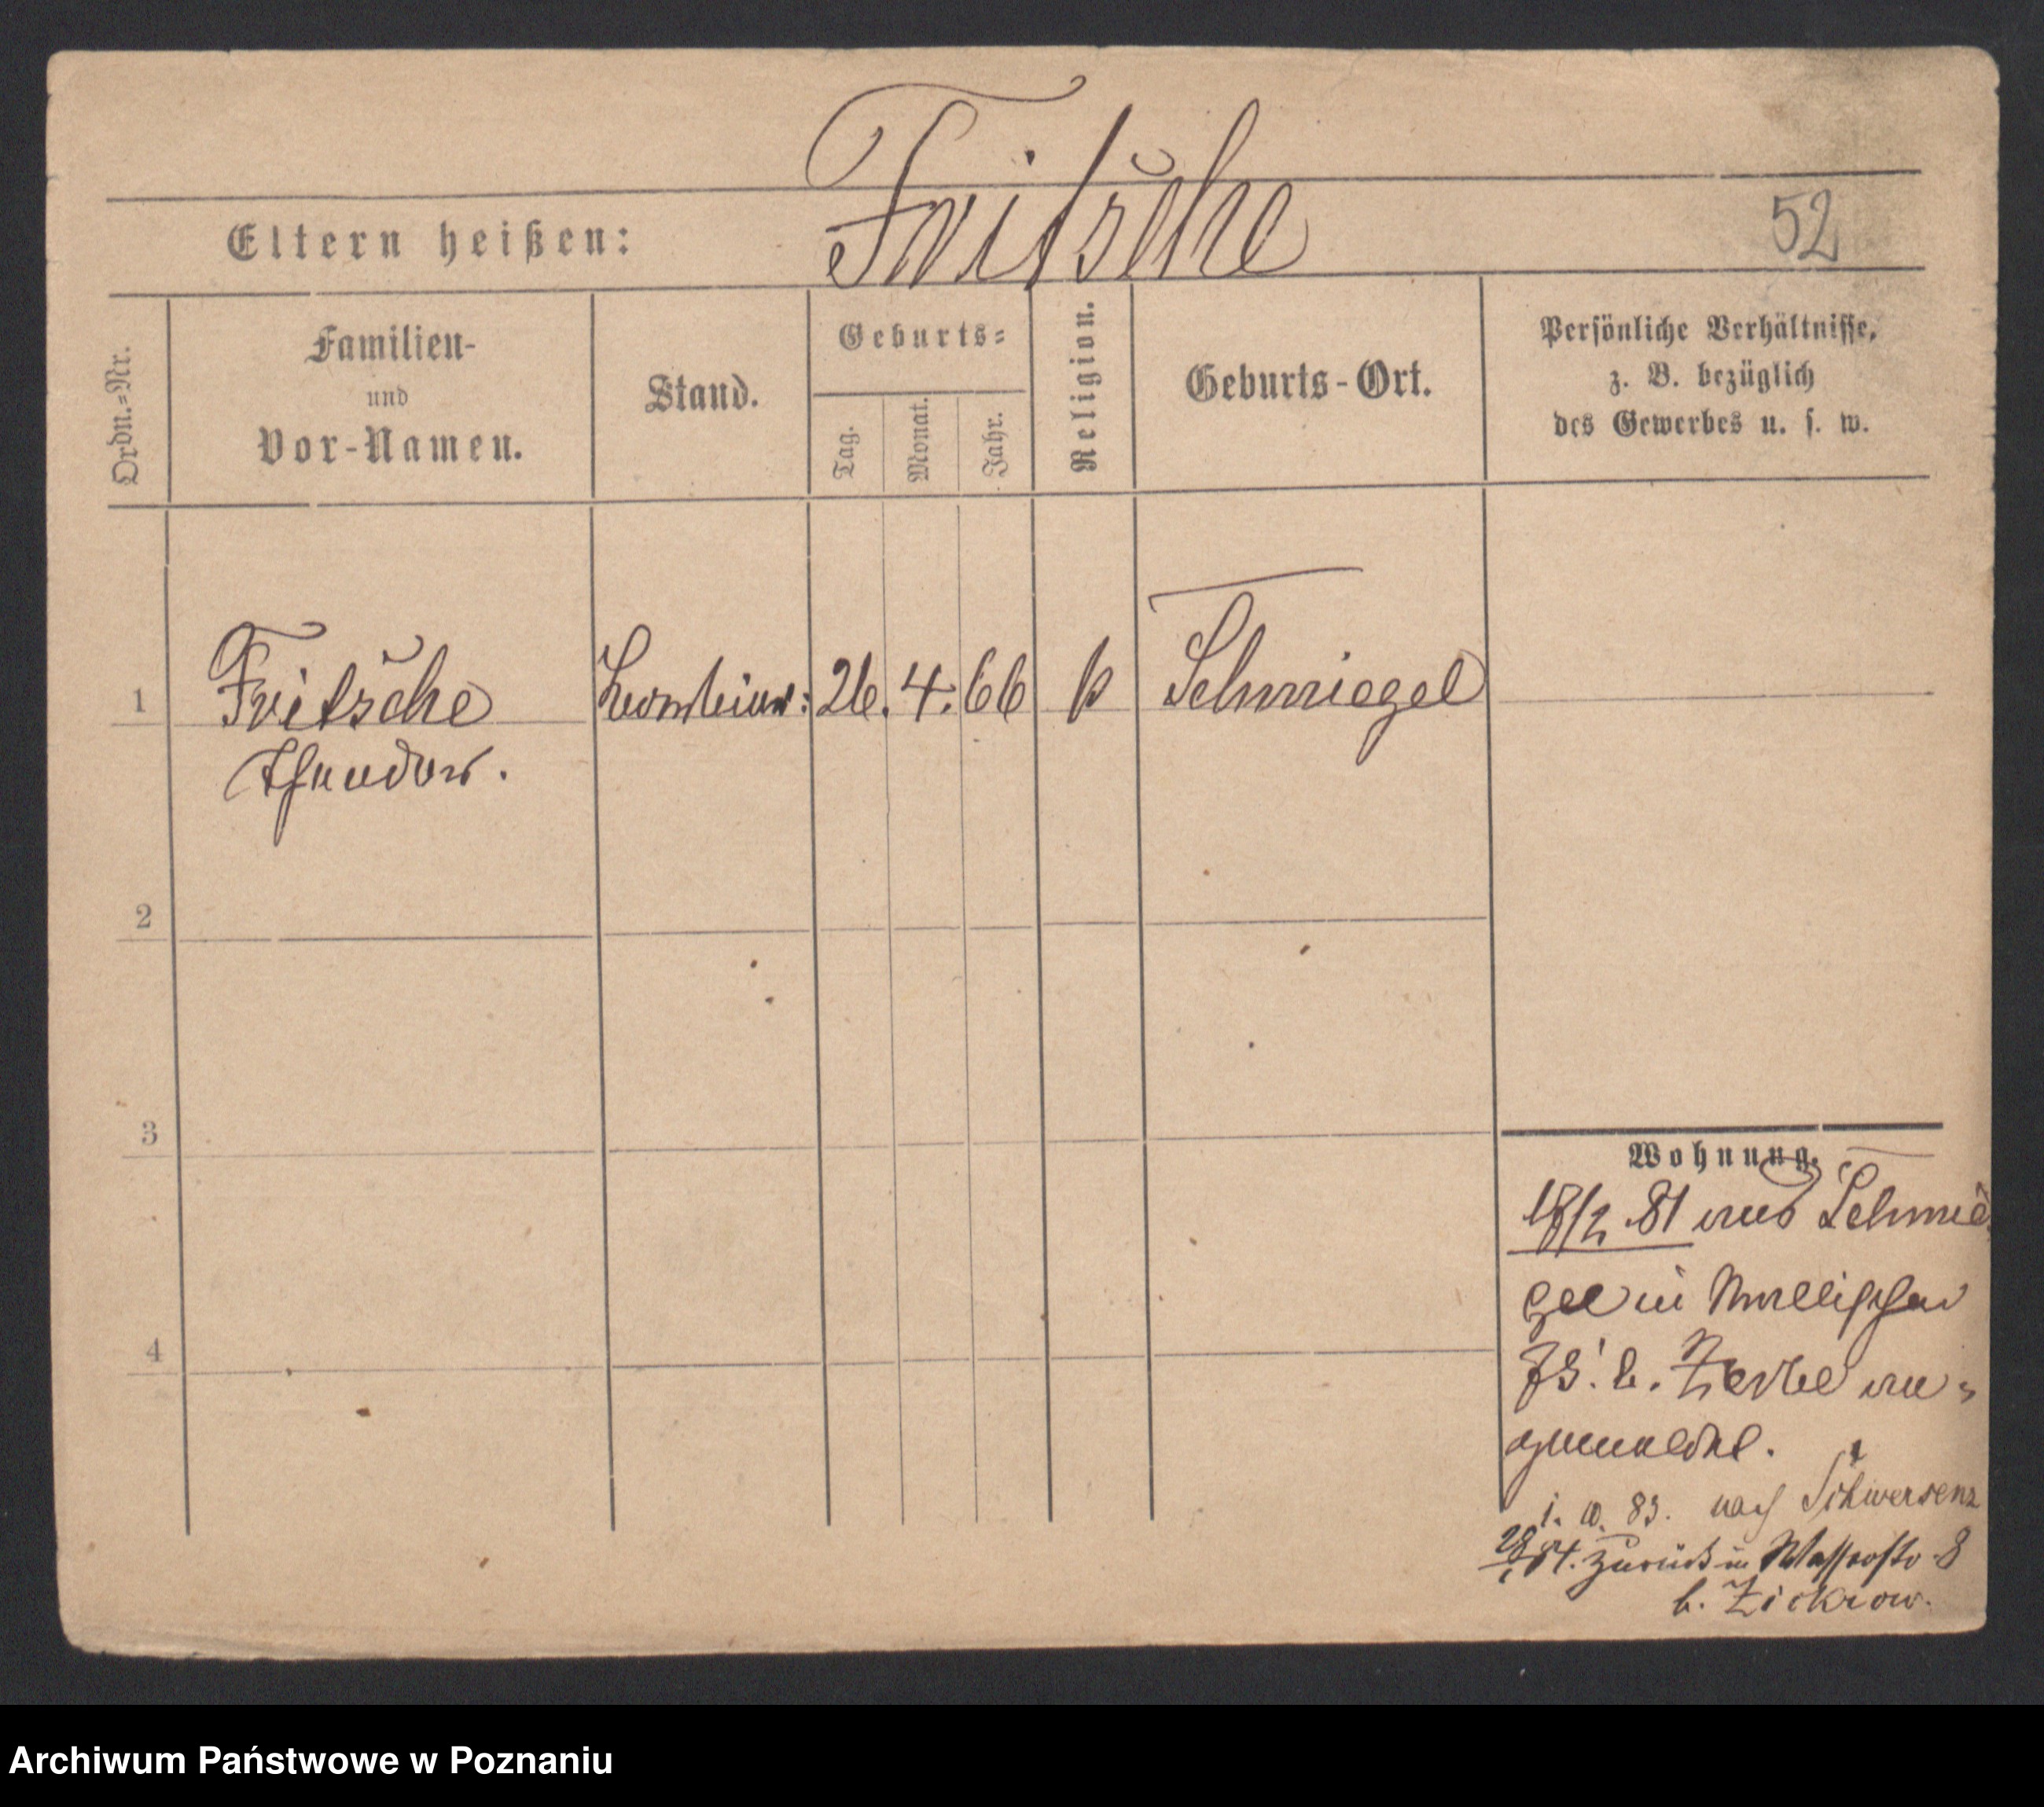 Fritsche
Eltern heißen:
52
Ordn.=Nr.
Familien-
und
Vor-Namen.
Stand.
Geburts=
Tag.
Monat.
Jahr.
Religion.
Geburts-Ort.
Persönliche Verhältnisse,
z. B. bezüglich
des Gewerbes u. s. w.
1
Fritsche
Theodor.
26. 4. 66
k
Schmiegel
2
3
4
Wohnung.
18/2 81 aus Schmie
gel in Wallischei
73. b. an=
gemeldet.
1. 10. 83. nach Schwersenz
28/1 84. zurück in Wasserstr 8
b. Zickrow.
Archiwum Państwowe w Poznaniu